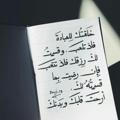 خلقتك للعبادة
فلا تلعب، وقسمت
لك رزقك فلا تتعب
فإن رضيت بما
قسمته لك
أرحت قلبك وبدنك